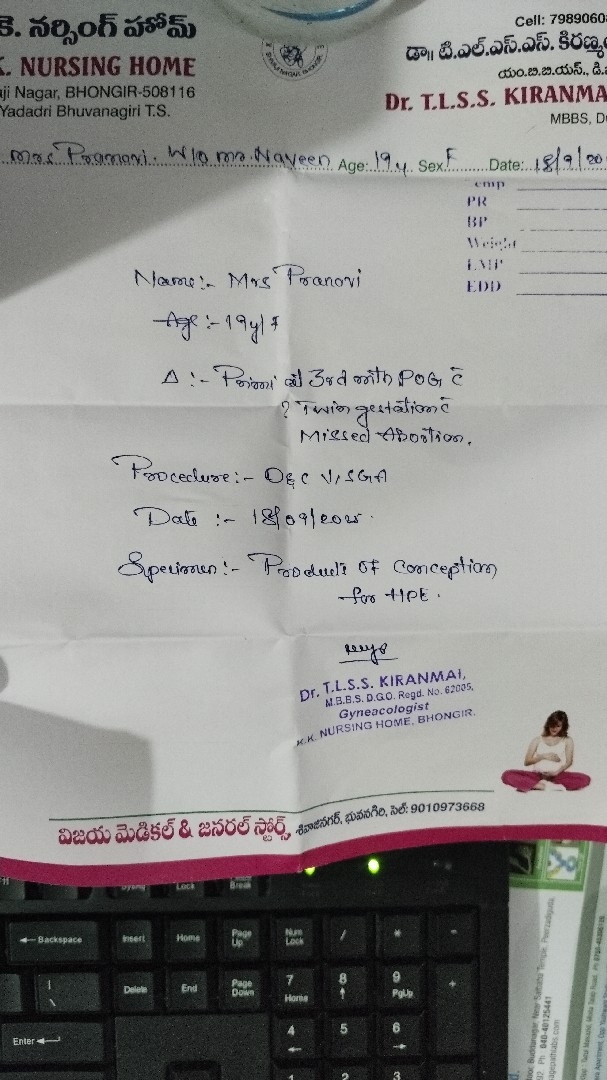 కె. నర్సింగ్ హోమ్
K. NURSING HOME
aji Nagar, BHONGIR-508116
Yadadri Bhuvanagiri T.S.
Cell: 7989060
డా॥ టి.ఎల్.ఎస్.ఎస్. కిరణ్మ
యం.బి.బి.యస్., డి.
Dr. T.L.S.S. KIRANMA
MBBS, D
Mrs Pranavi. W/o Mr. Naveen Age: 19y Sex F Date: 18/9/20
emp
PR
BP
Weight
LMP
EDD
Name:- Mrs Pranavi
Age:- 19y/F
Δ:- Primi at 3rd mth POG c̄
? Twin gestation c̄
Missed Abortion.
Procedure:- D&C V/SGA
Date :- 18/09/2025.
Specimen:- Products OF Conception
for HPE.
Dr. T.L.S.S. KIRANMAI,
M.B.B.S. D.G.O. Regd. No. 62005,
Gyneacologist
K.K. NURSING HOME, BHONGIR.
విజయ మెడికల్ & జనరల్ స్టోర్స్, శివాజీనగర్, భువనగిరి, సెల్: 9010973668
Lock
Break
Backspace
Insert
Home
Page Up
Num Lock
/
*
-
\
Delete
End
Page Down
7 Home
8
9 PgUp
+
Enter
4
5
6
2
3
Ph 040-40125441